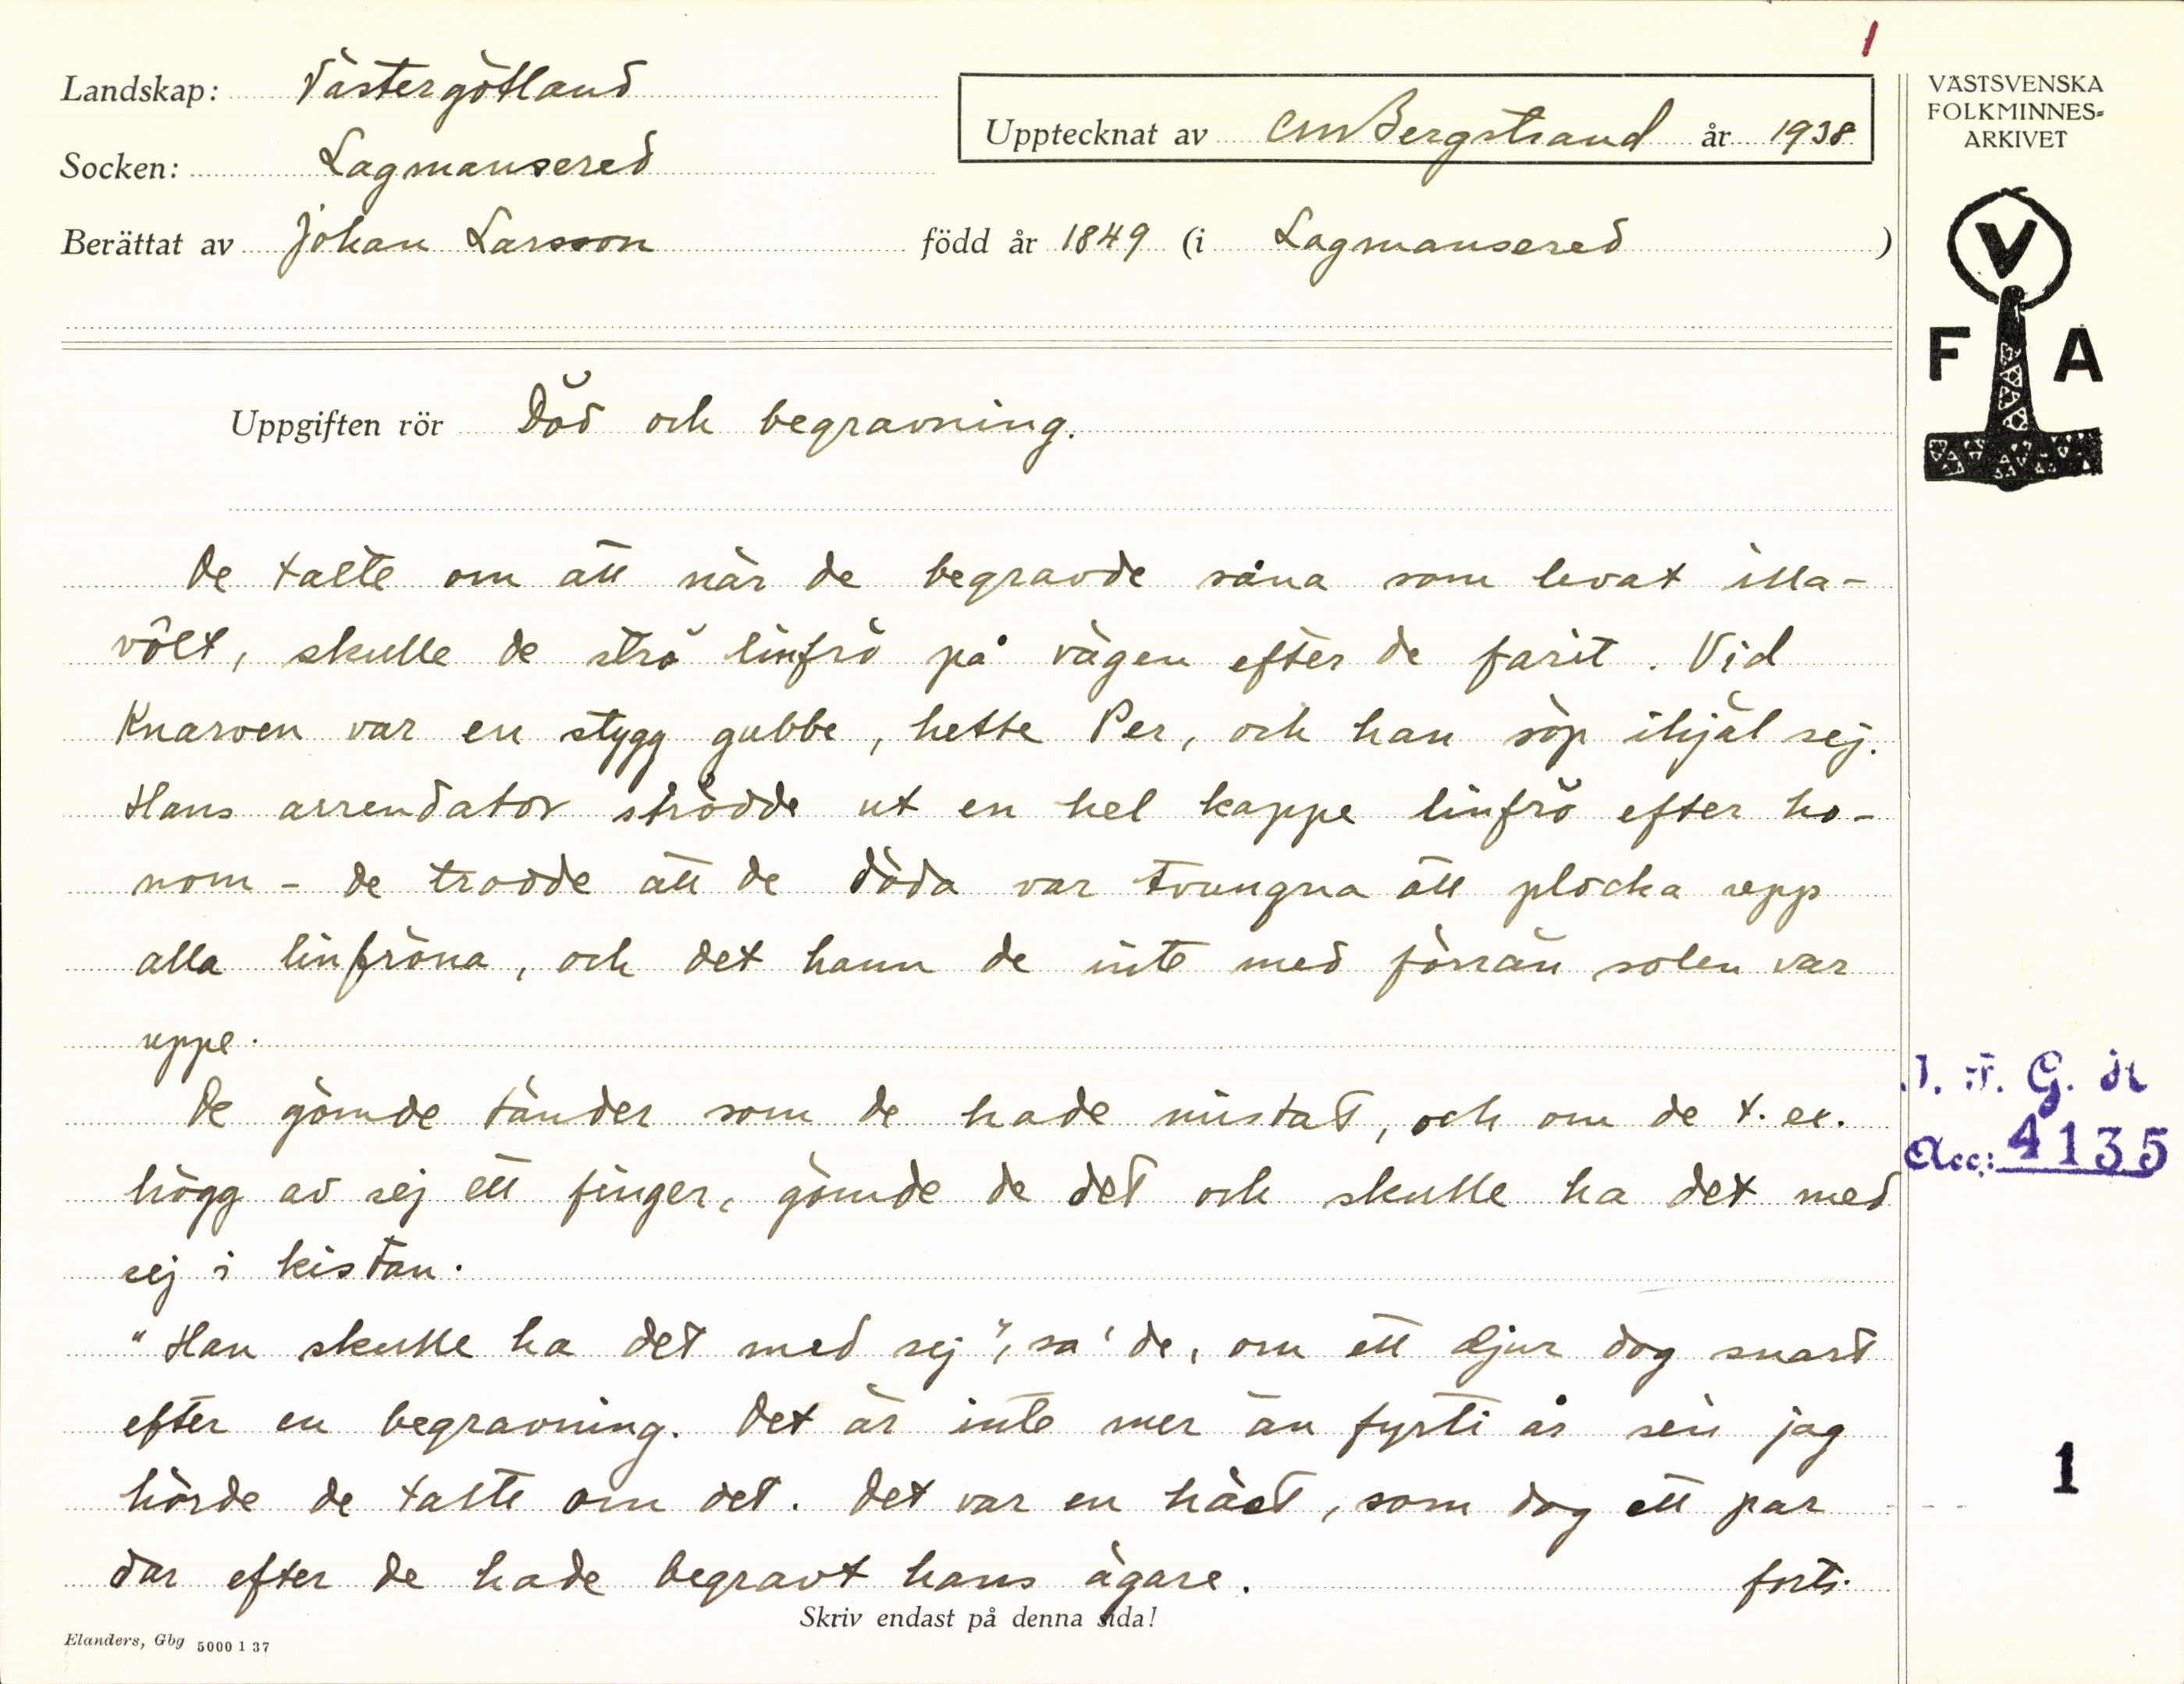 1
Landskap: Västergötland
Upptecknat av CMBergstrand år 1938
Socken: Lagmansered
Berättat av Johan Larsson född år 1849 (i Lagmansered )
VÄSTSVENSKA
FOLKMINNES-
ARKIVET
V
F A
Uppgiften rör Död och begravning.
De talte om att när de begravde såna som levat illa-
vôlt, skulle de strö linfrö på vägen efter de farit. Vid
Knarven var en stygg gubbe, hette Per, och han söp ihjäl sej.
Hans arrendator strödde ut en hel kappe linfrö efter ho-
nom - de trodde att de döda var tvungna att plocka upp
alla linfröna, och det hann de inte med förrän solen var
uppe.
De gömde tänder som de hade mistat, och om de t. ex.
högg av sej ett finger, gömde de det och skulle ha det med
sej i kistan.
"Han skulle ha det med sej", sa' de, om ett djur dog snart
efter en begravning. Det är inte mer än fyrti år sen jag
hörde de talte om det. Det var en häst, som dog ett par
dar efter de hade begravt hans ägare. forts.
I. F. G. H
Acc: 4135
1
Skriv endast på denna sida!
Elanders, Gbg 5000 1 37